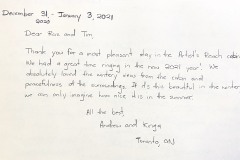 December 31 - January 3, 2021
2020
Dear Ros and Tom
Thank you for a most pleasant stay in the Artist's Reach cabin.
We had a great time ringing in the new 2021 year! We
absolutely loved the watery view from the cabin and
peacefulness of the surroundings. If it's this beautiful in the winter
we can only imagine how nice it is in the summer.
All the best,
Andrew and
Toronto, ON